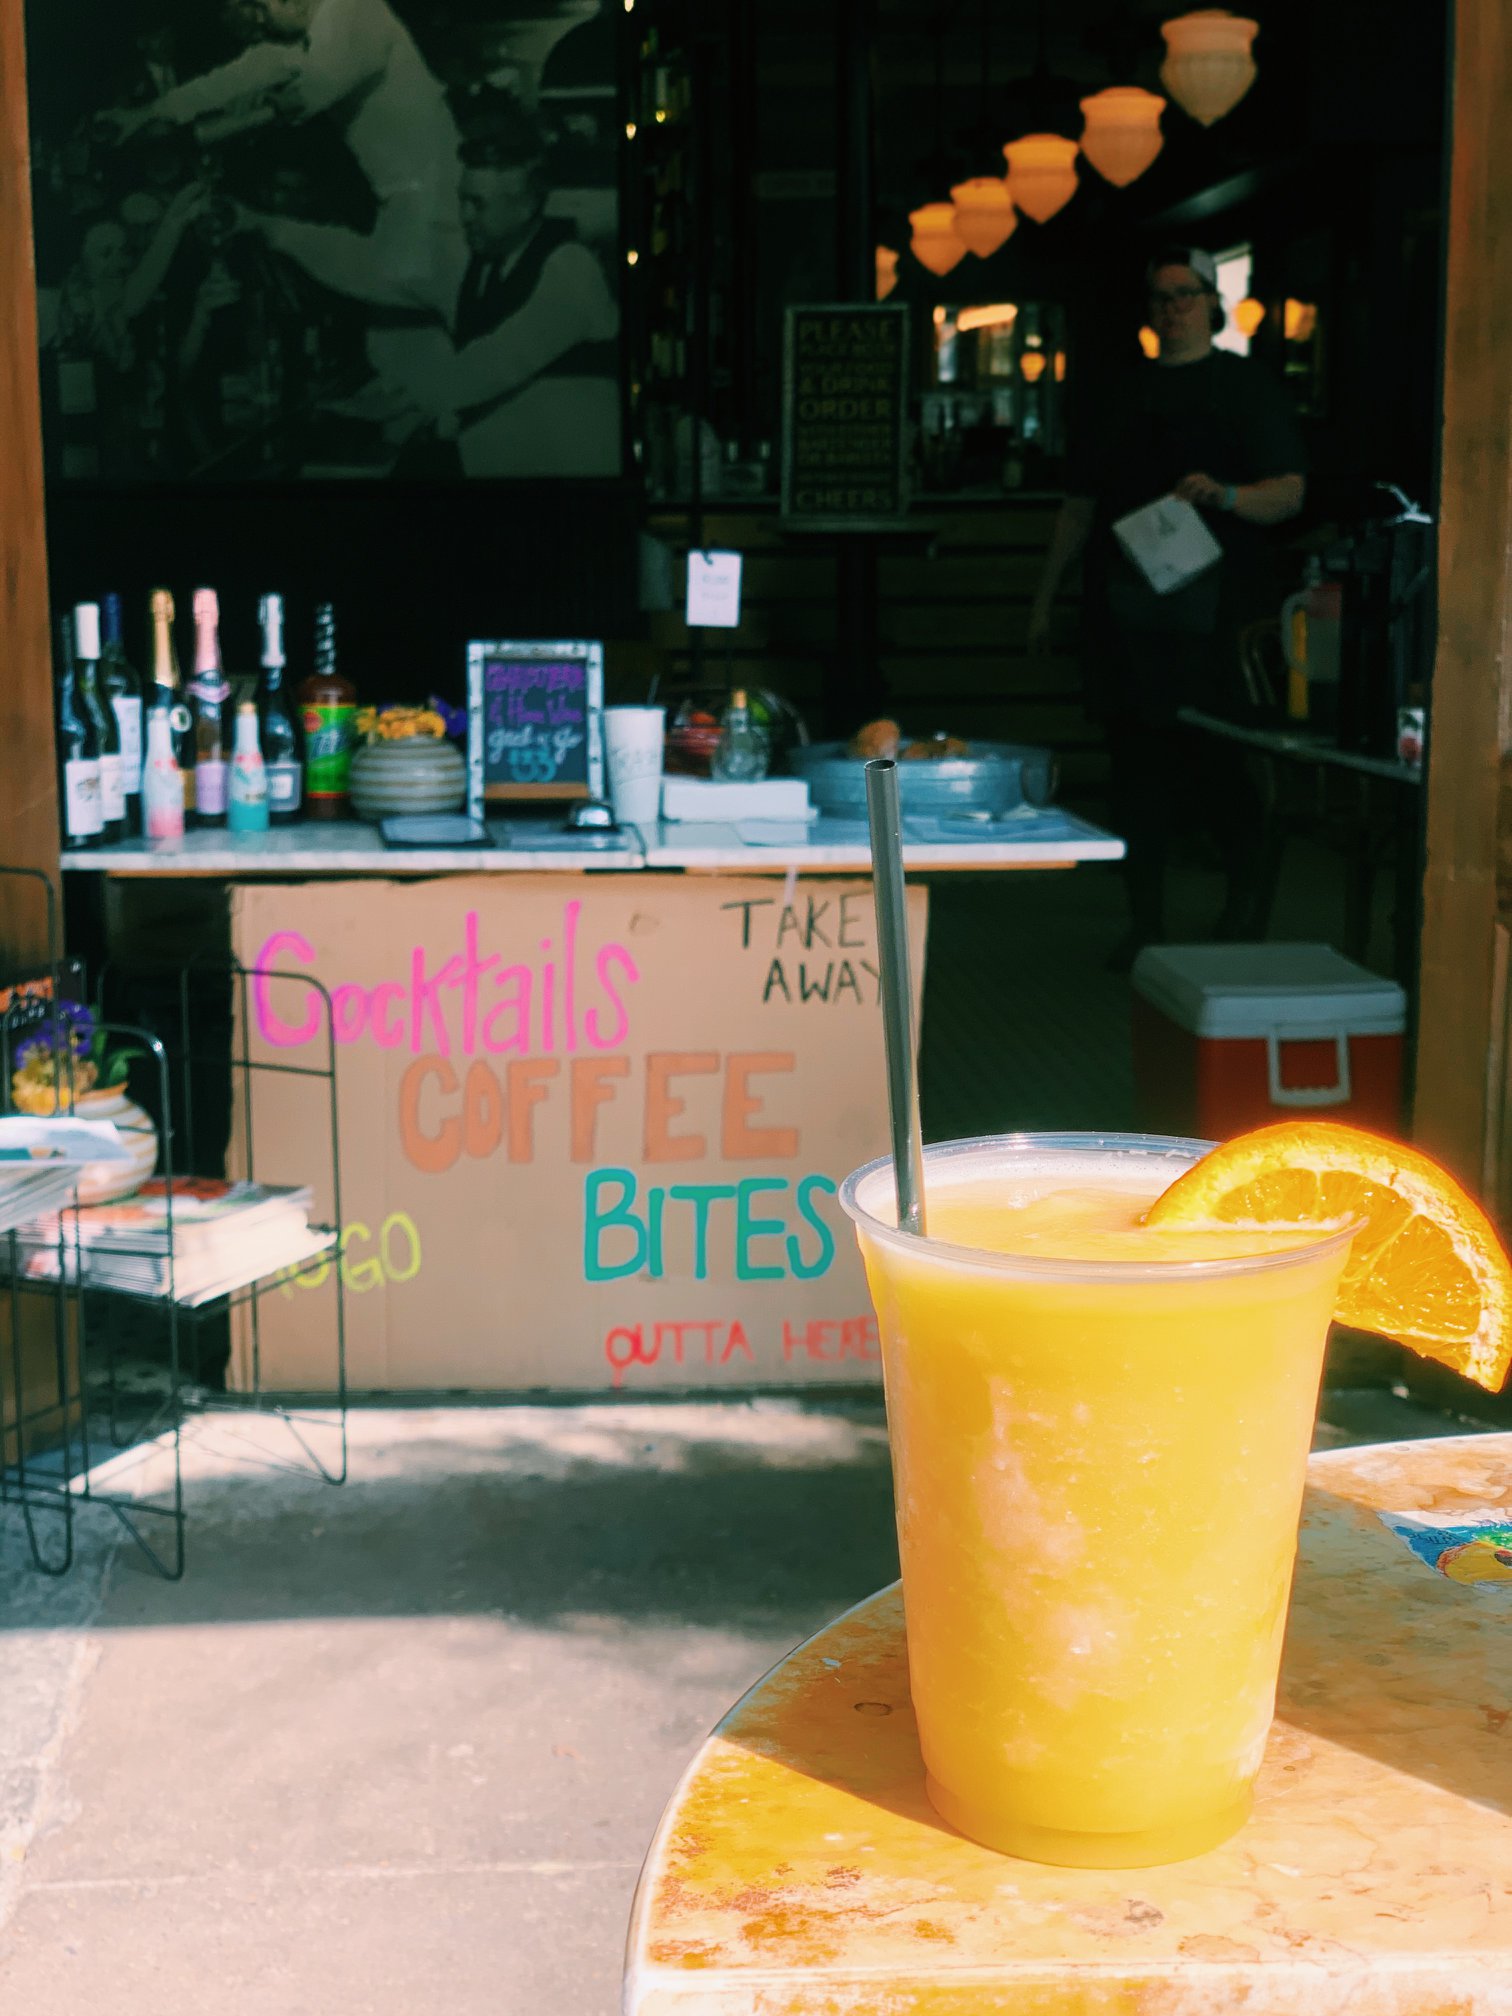 PLEASE
& DRINK
ORDER
CHEERS
& House Wine
Cocktails
TAKE
AWAY
COFFEE
BITES
TO GO
OUTTA HERE